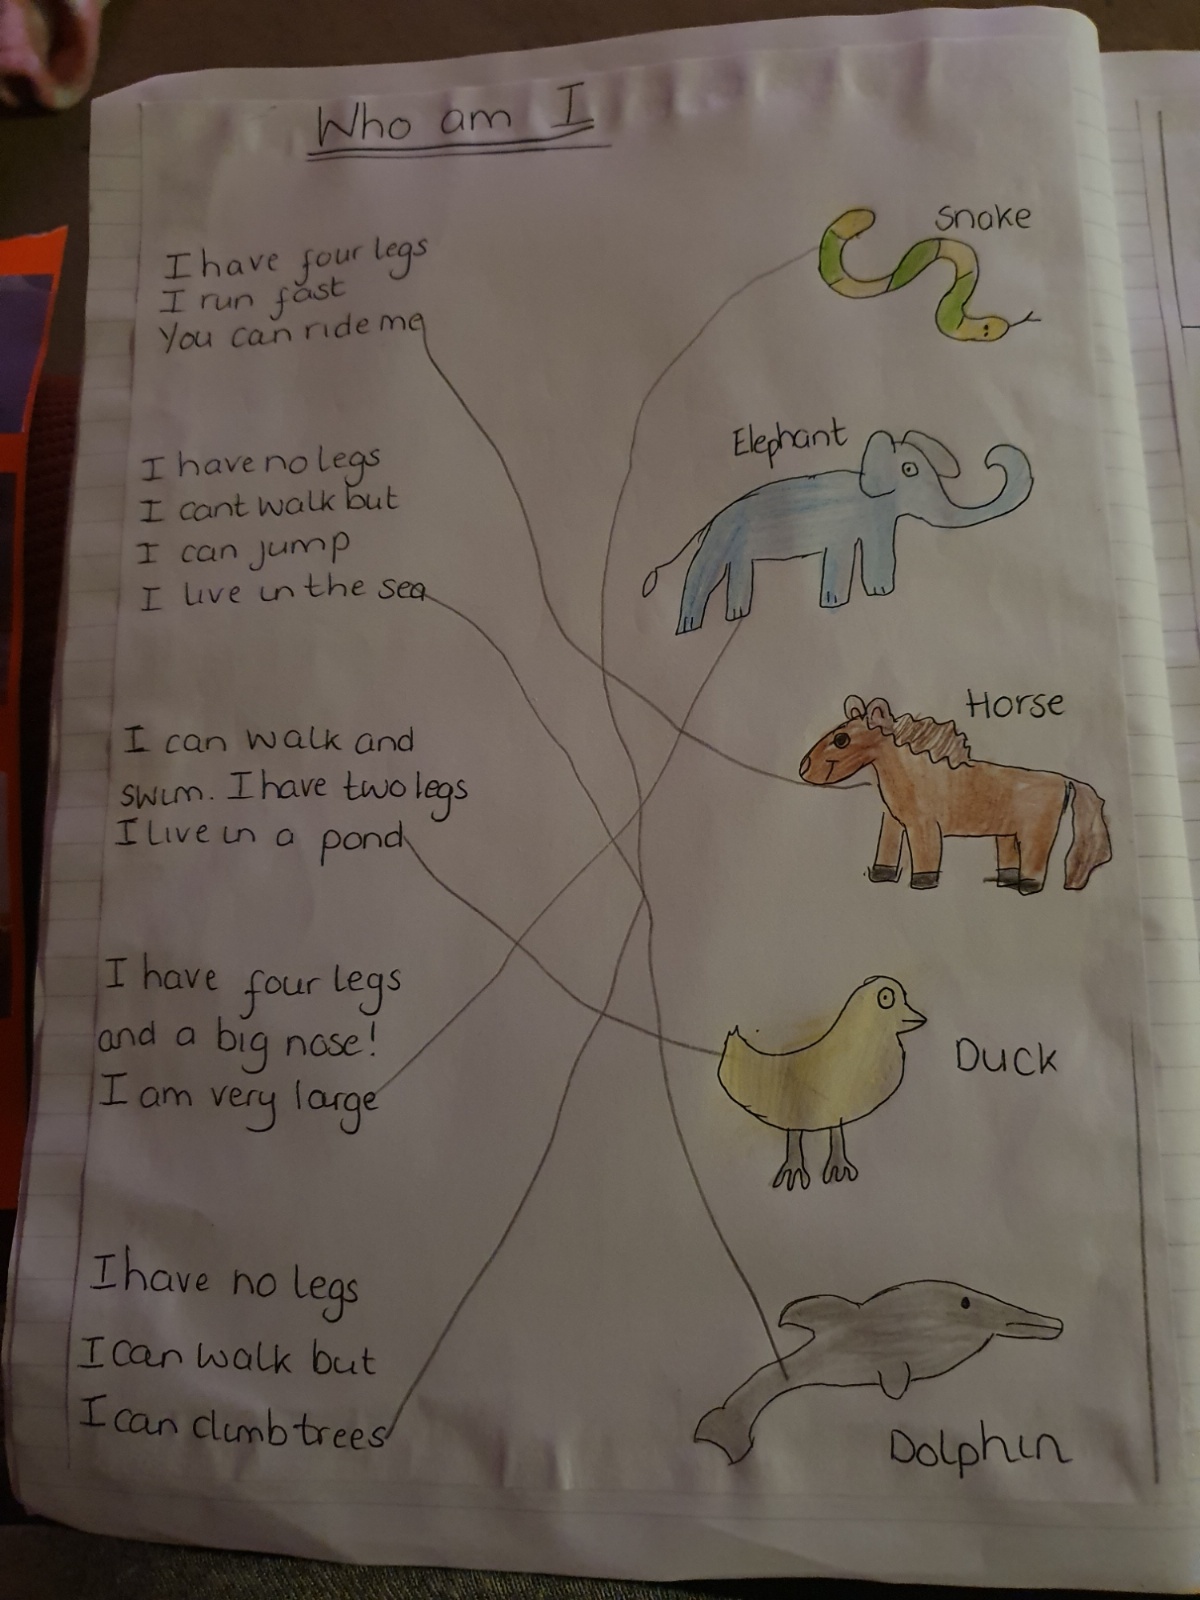 Who am I
I have four legs
I run fast
You can ride me
I have no legs
I cant walk but
I can jump
I live in the sea
I can walk and
swim. I have two legs
I live in a pond
I have four legs
and a big nose!
I am very large
I have no legs
I can walk but
I can climb trees
Snake
Elephant
Horse
Duck
Dolphin